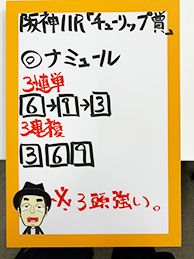 阪神11R「チューリップ賞」
◎ナミュール
3連単
6→9→3
3連複
3 6 9
※3頭強い。